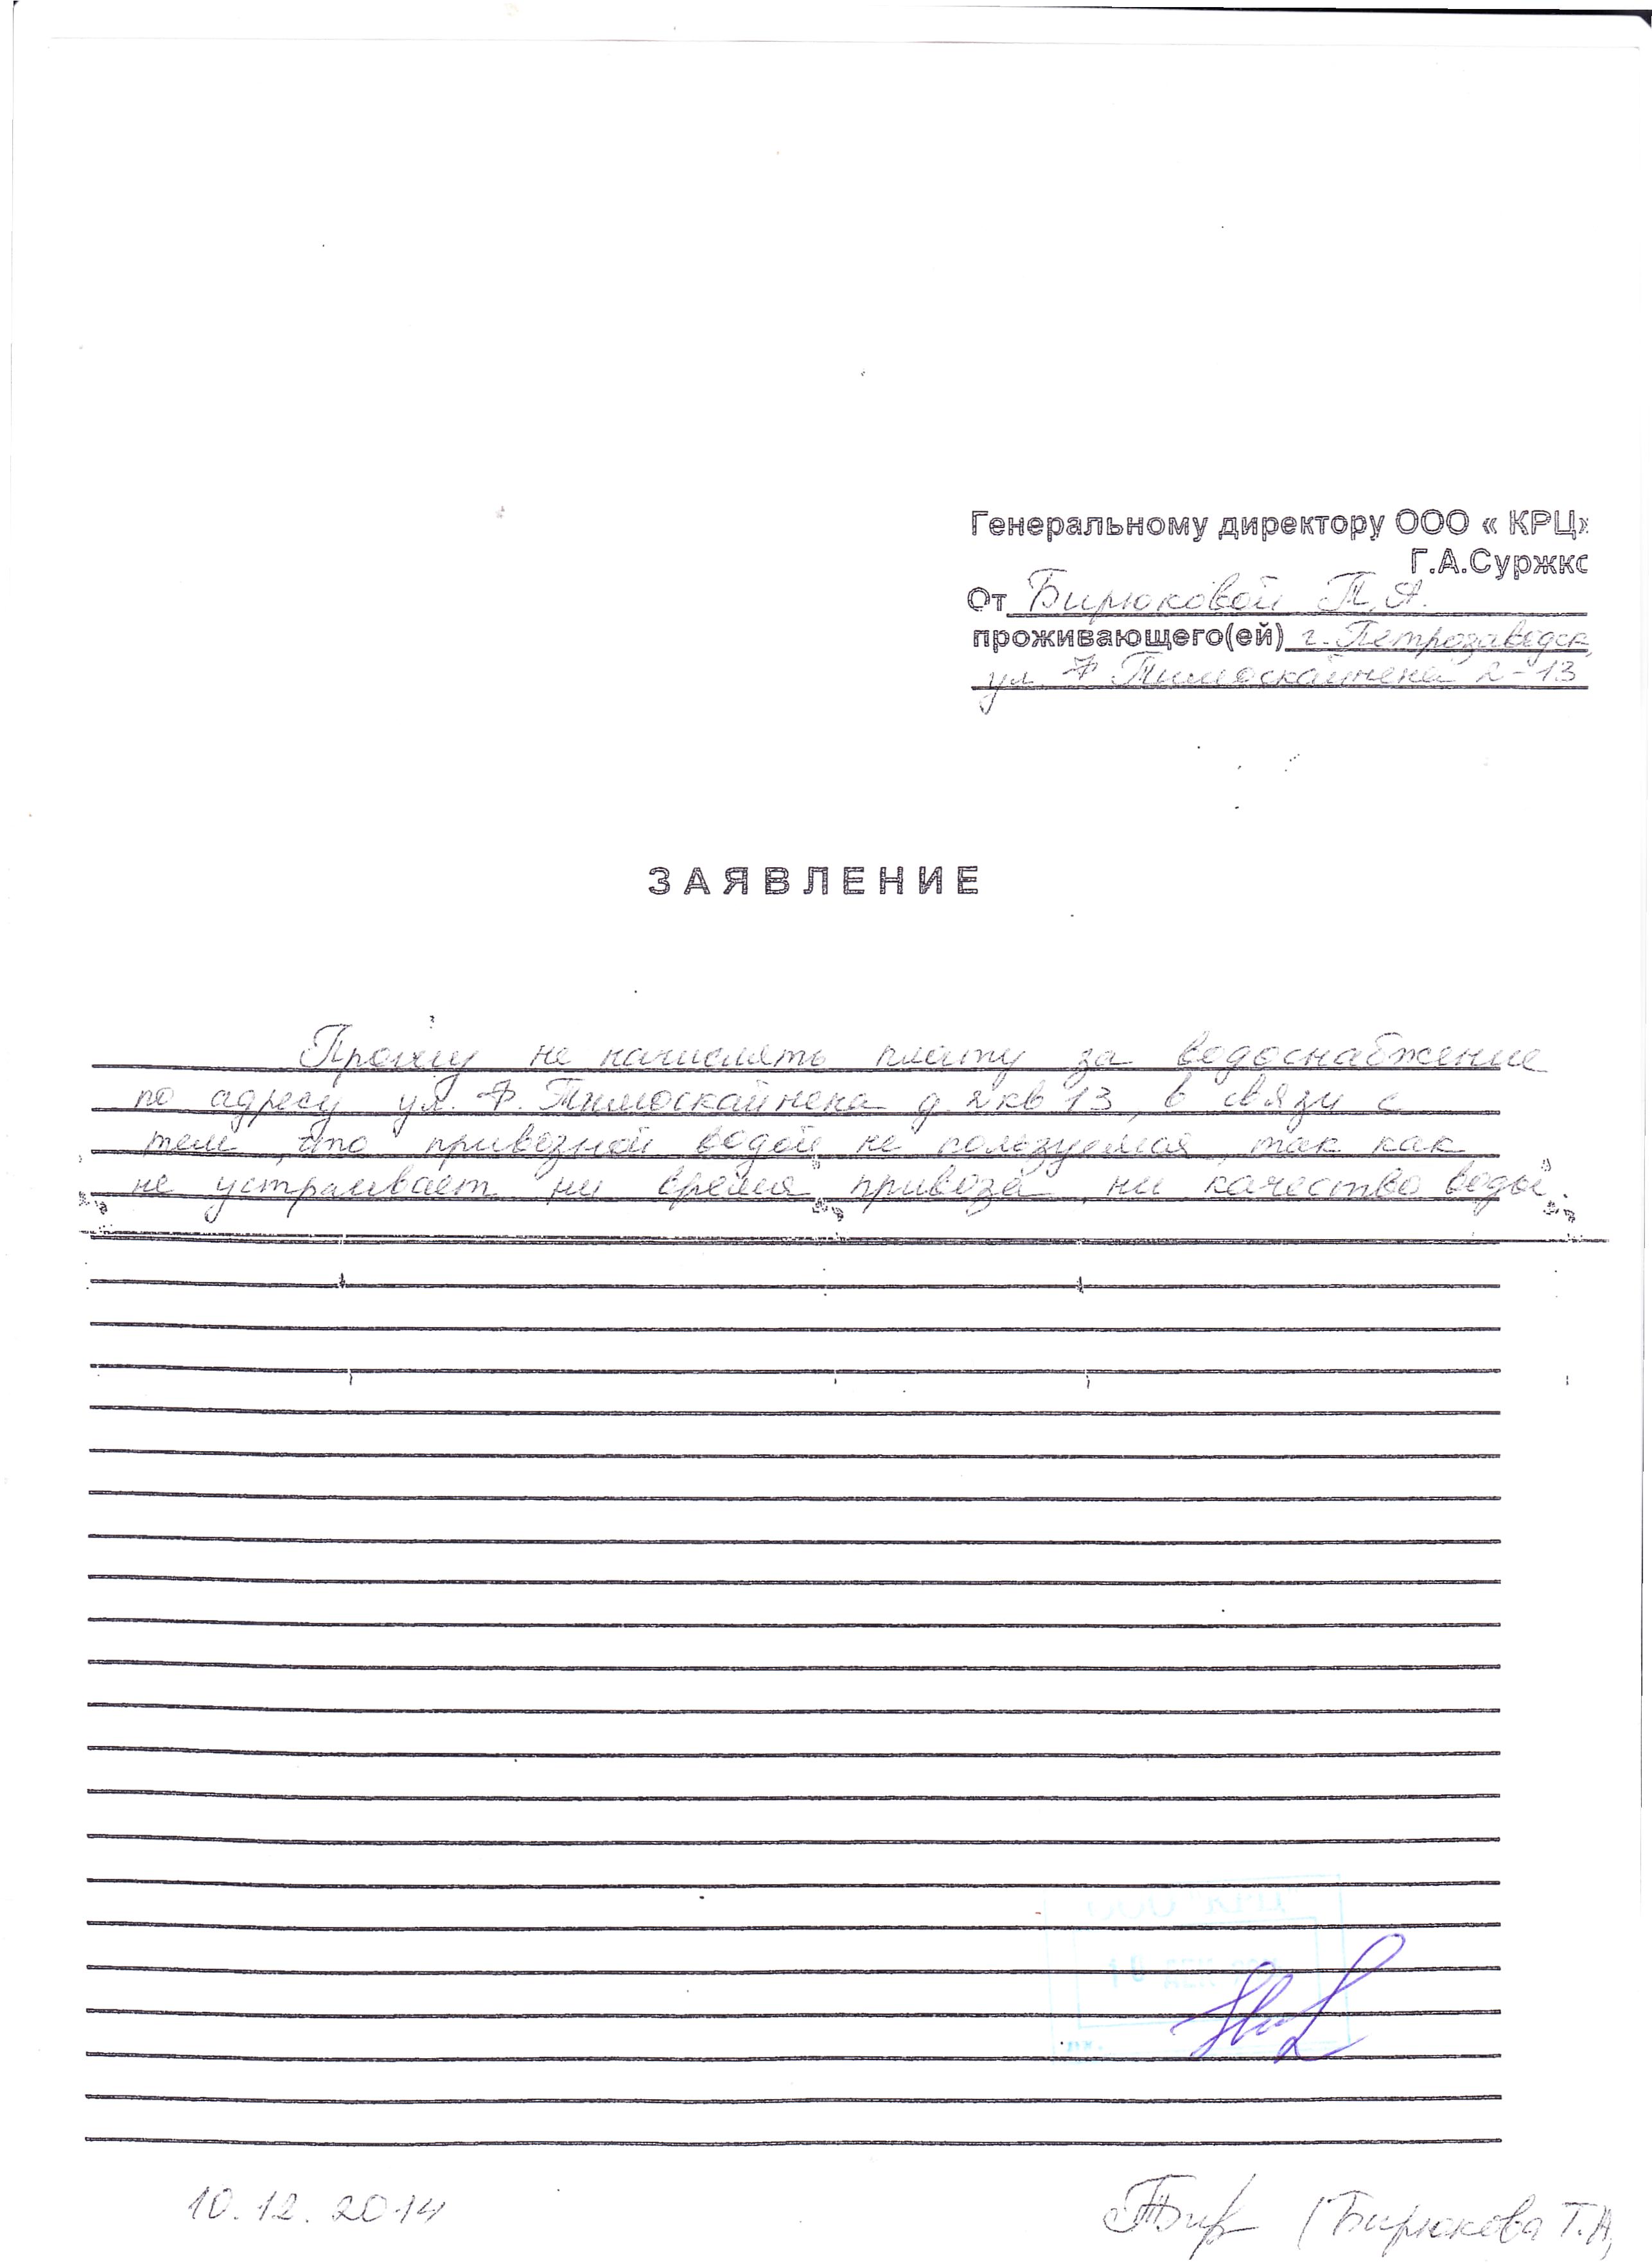 Генеральному директору ООО « КРЦ»
Г.А.Суржко
От Бирюковой Т.А.
проживающего(ей) г. Петрозаводск,
ул. Ф Тимоскайнена 2-13
ЗАЯВЛЕНИЕ
Прошу не начислять плату за водоснабжение
по адресу ул. Ф. Тимоскайнена д. 2 кв 13, в связи с
тем, что привозной водой не пользуемся, так как
не устраивает ни время привоза, ни качество воды.
10.12.2014 (Бирюкова Т.А,